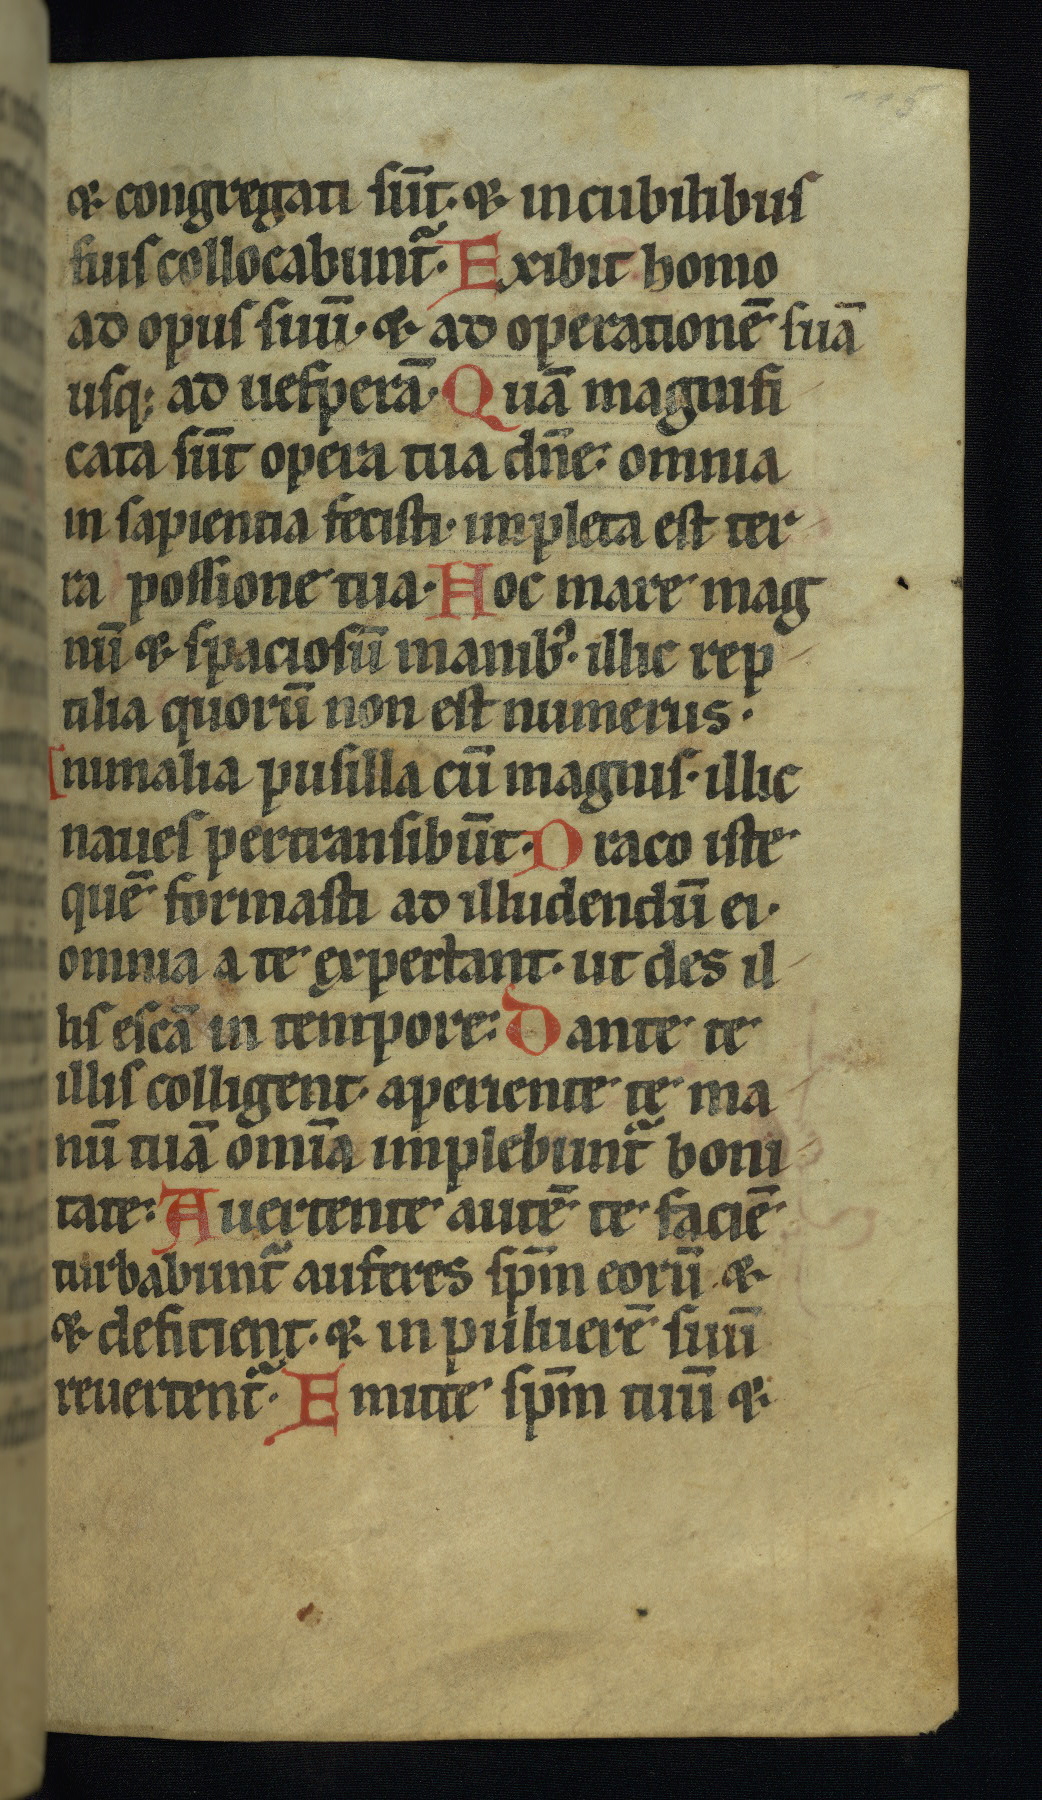 ⁊ congregati sūt · ⁊ in cubilibus
suis collocabunt᷑ · Exibit homo
ad opus suū · ⁊ ad operationē suā
usq; ad uesperā · Quā magnifi
cata sūt opera tua dn̄e : omnia
in sapientia fecisti · impleta est ter
ra possione tua · Hoc mare mag
nū ⁊ spaciosū manibꝰ · illic rep
tilia quorū non est numerus ·
nimalia pusilla cū magnis · illic
naues pertransibūt · Draco iste
quē formasti ad illudendū ei ·
omnia a te expectant · ut des il
lis escā in tempore : Dante te
illis colligent · aperiente te ma
nū tuā om̄ia implebunt᷑ boni
tate : Auertente autē te faciē
turbabunt᷑ auferes sp̄m eorū · ⁊
⁊ deficient · ⁊ in puluerē suū
reuertent᷑ · Emitte sp̄m tuū ⁊